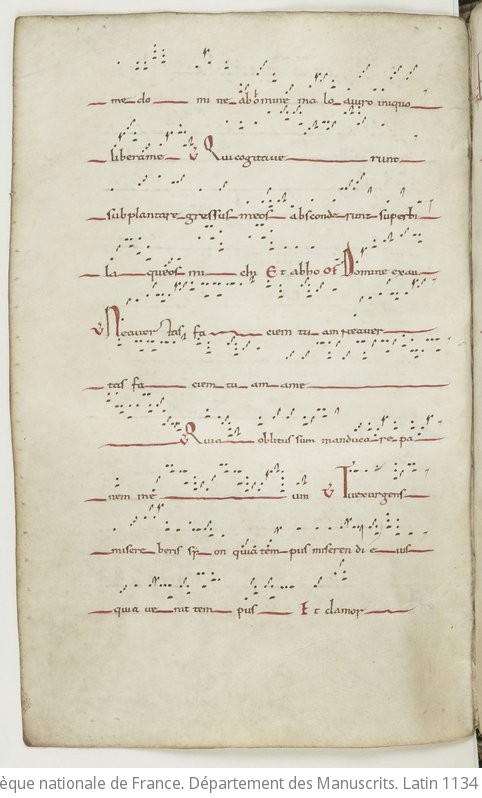 me do mi ne ab homine ma lo a viro iniquo
libera me V Qui cogitave runt
subplantare gressus meos absconde runt superbi
la queos mi chi Et ab ho Of Domine exau
V Neaver tas fa ciem tu am neaver
tas fa ciem tu am ame
V Quia oblitus sum manduca re pa
nem me um V Tu exurgens
misere beris syon quia tempus miseren di e ius
quia ve nit tem pus Et clamor
èque nationale de France. Département des Manuscrits. Latin 1134